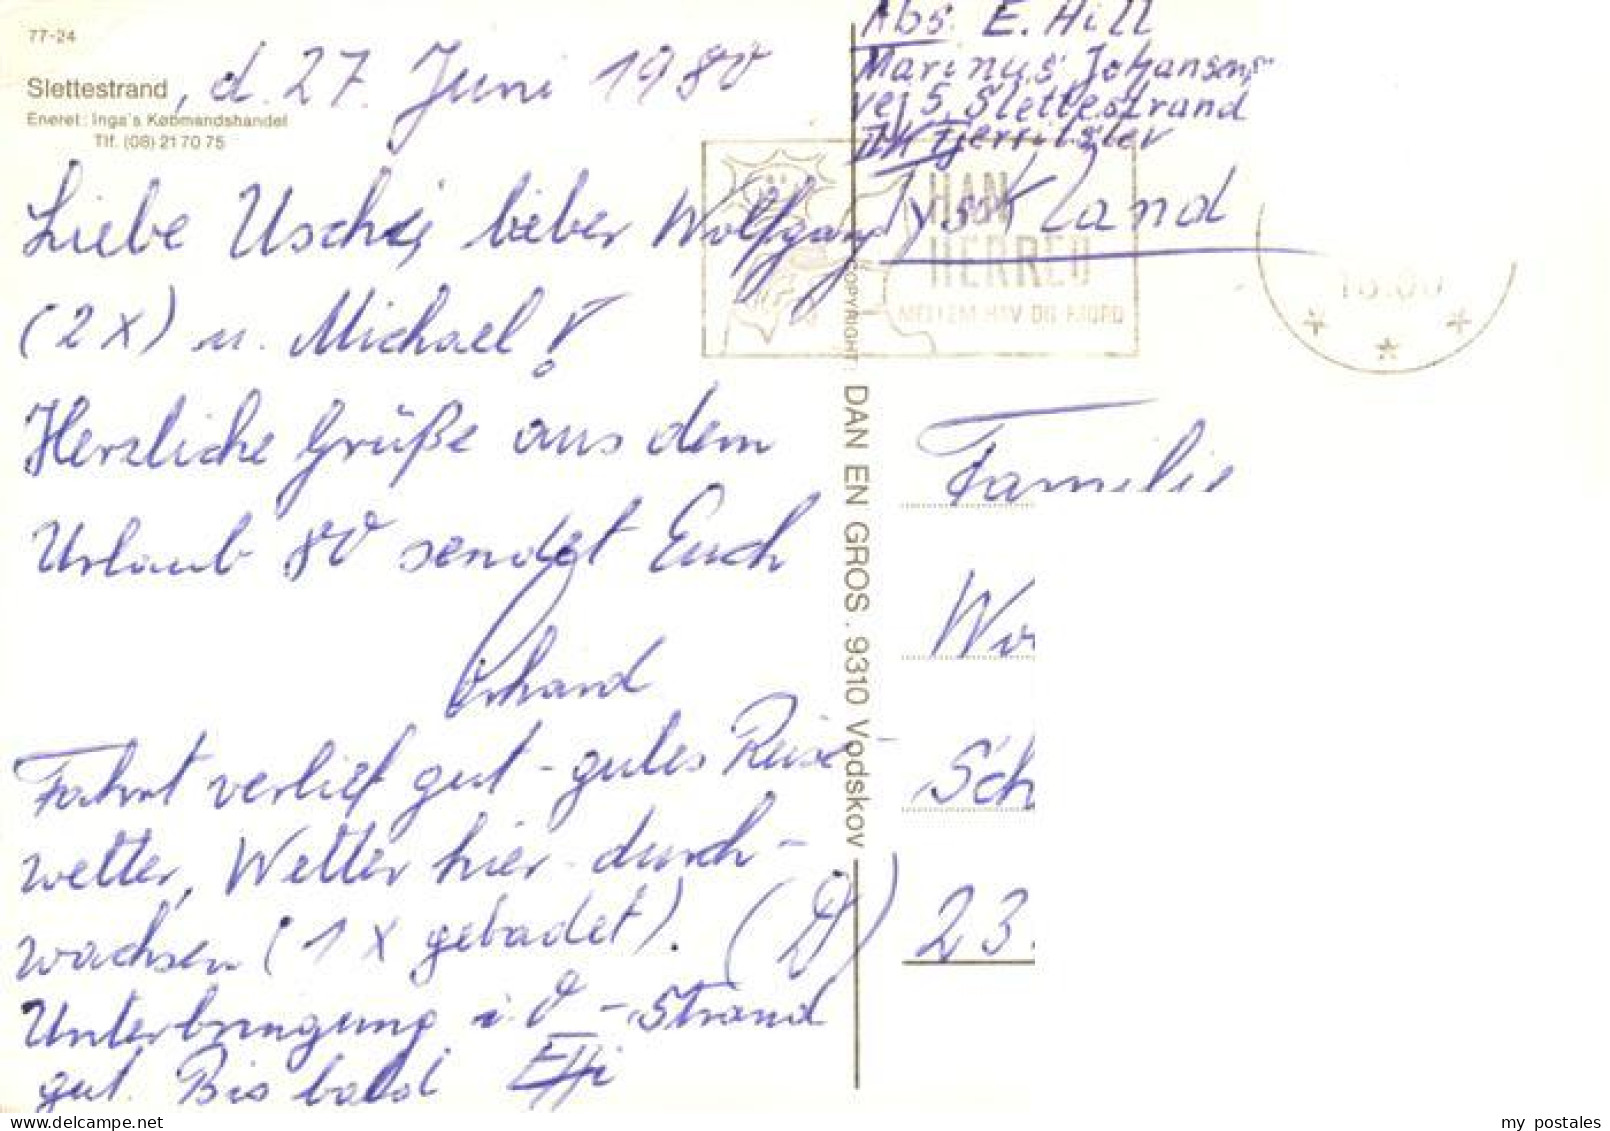 77-24
Slettestrand, d. 27. Juni 1980
Eneret: Inga's Købmandshandel
Tlf. (08) 21 70 75
Liebe Uschi, lieber Wolfgang
(2x) u. Michael!
Herzliche Grüße aus dem
Urlaub 80 sendet Euch
Erhard
Fahrt verlief gut - gutes Reise-
wetter, Wetter hier durch-
wachsen (1 x gebadet).
Unterbringung i. O - Strand
gut. Bis bald Effi
COPYRIGHT: DAN EN GROS . 9310 Vodskov
Abs. E. Hill
Marinus Johansens
vej 5, Slettestrand
DK Fjerritslev
Jyskland
HAN
HERRED
MELLEM HAV OG FJORD
Familie
Wo
Sch
23.
my postales